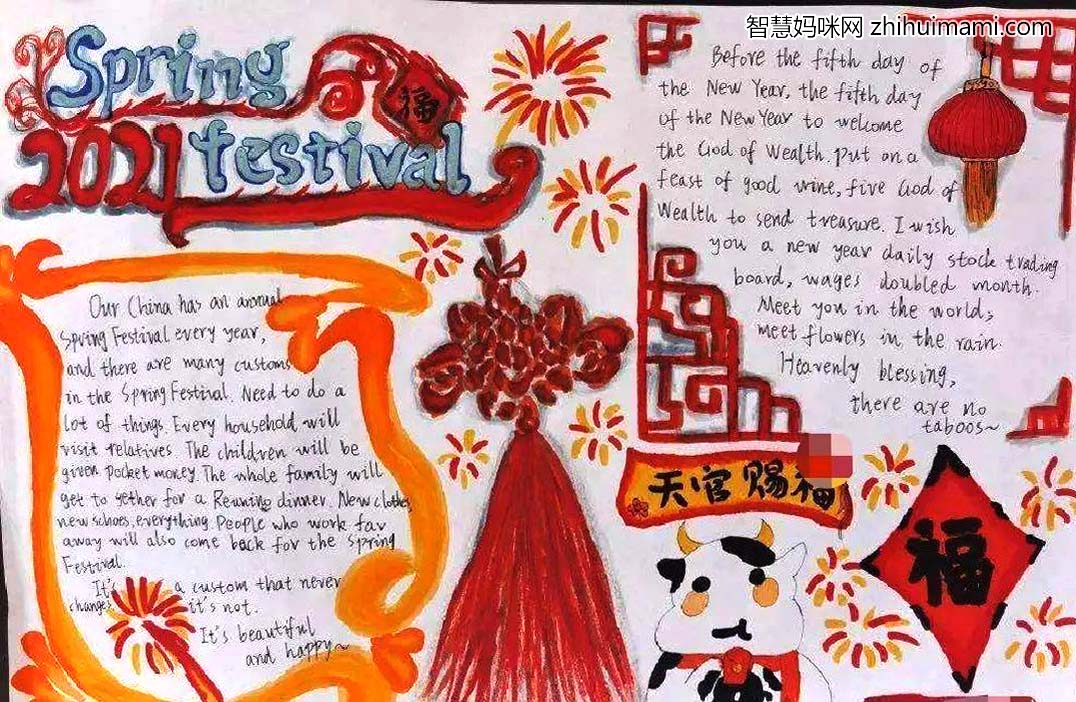 智慧妈咪网 zhihuimami.com
Spring
2021 festival
福
Our China has an annual
Spring Festival every year,
and there are many customs
in the Spring Festival. Need to do a
lot of things. Every household will
visit relatives The children will be
given pocket money. The whole family will
get to yether for a Reunino dinner. New clothes,
new schoes, everything. People who work far
away will also come back for the Spring
Festival.
It's a custom that never
changes it's not.
It's beautiful
and happy~
Before the fifth day of
the New Year, the fifth day
of the New Year to welcome
the God of Wealth. Put on a
feast of good wine, five God of
Wealth to send treasure. I wish
you a new year daily stock trading
board, wages doubled month.
Meet you in the world;
meet flowers in the rain.
Heavenly blessing,
there are no
taboos~
天官赐福
福